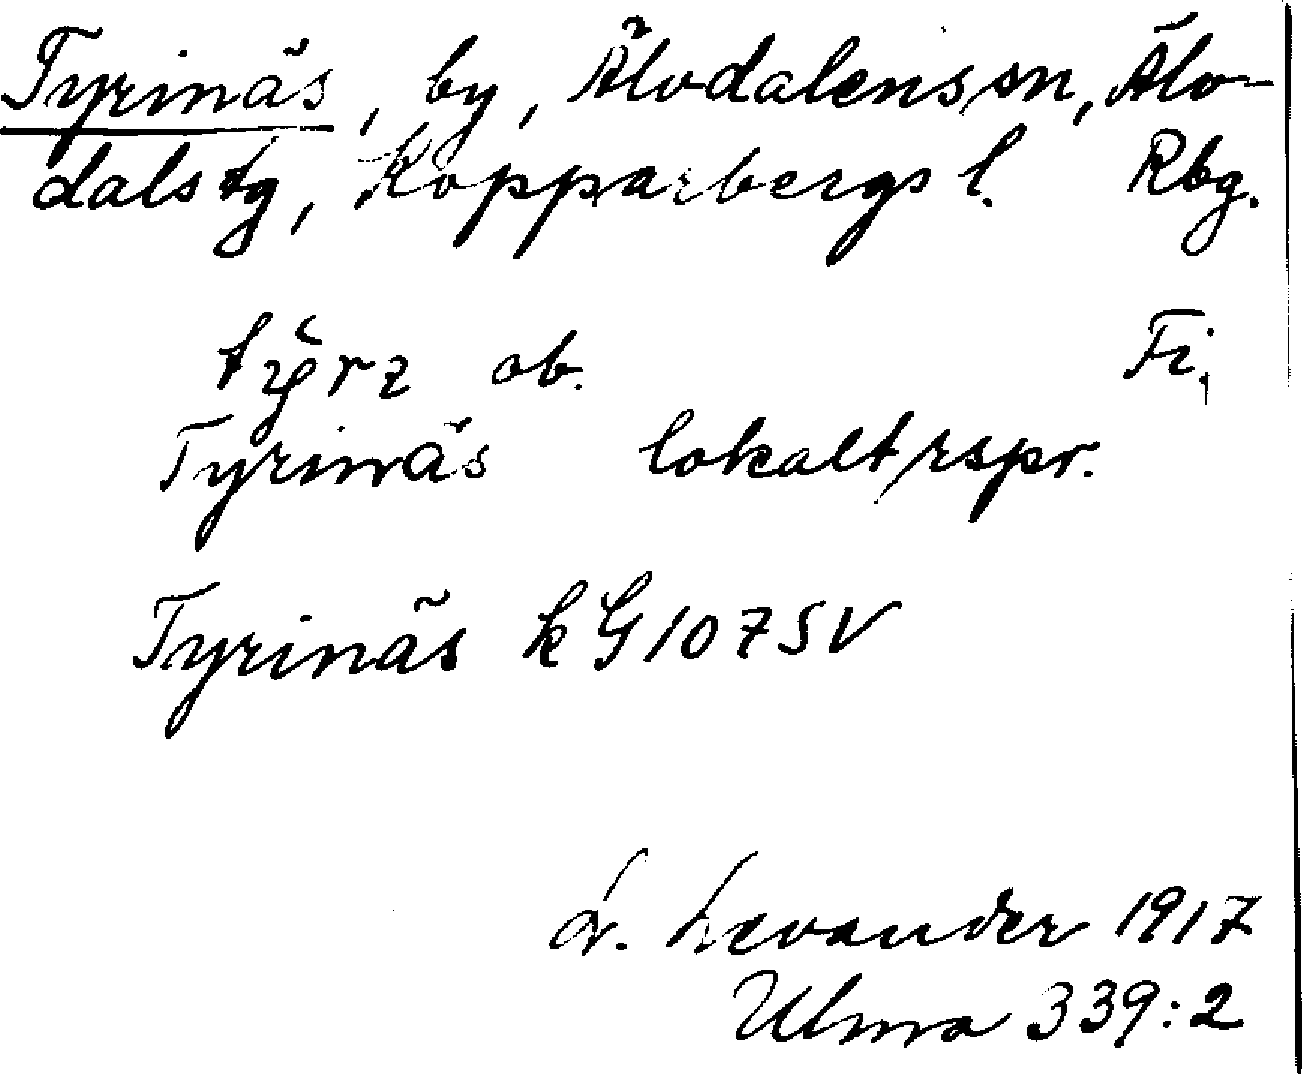 Tyrinäs, by, Älvdalens sn, Älv-
dals tg, Kopparbergs l. Rbg.
ob. Fi.
Tyrinäs lokalt rspr.
Tyrinäs kG 107 SV
L. Levander 1917
Ulma 339:2